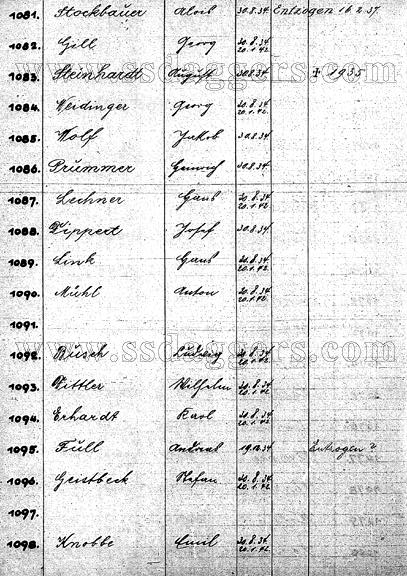 1081. Stockbauer Alois 30.8.34 Entzogen 16.2.37.
1082. Gill Georg 30.8.34
20.1.42.
1083. Steinhardt August 30.8.34 ‡ 1935
www.ssdaggers.com
1084. Weidinger Georg 30.8.34
20.1.42.
1085. Wolf Jakob 30.8.34
1086. Prummer Heinrich 30.8.34
1087. Lechner Hans 30.8.34
20.1.42.
1088. Dippert Josef 30.8.34
1089. Link Hans 30.8.34
20.1.42.
1090. Mühl Anton 30.8.34
20.1.42.
1091.
www.ssdaggers.com
1092. Rusch Ludwig 30.8.34
20.1.42.
1093. Wilhelm 30.8.34
20.1.42.
1094. Erhardt Karl 30.8.34
20.1.42.
1095. Füll Andreas 19.12.34 Entzogen ?
1096. Geistbeck Stefan 30.8.34
20.1.42.
1097.
1098. Knobbe Emil 30.8.34
20.1.42.